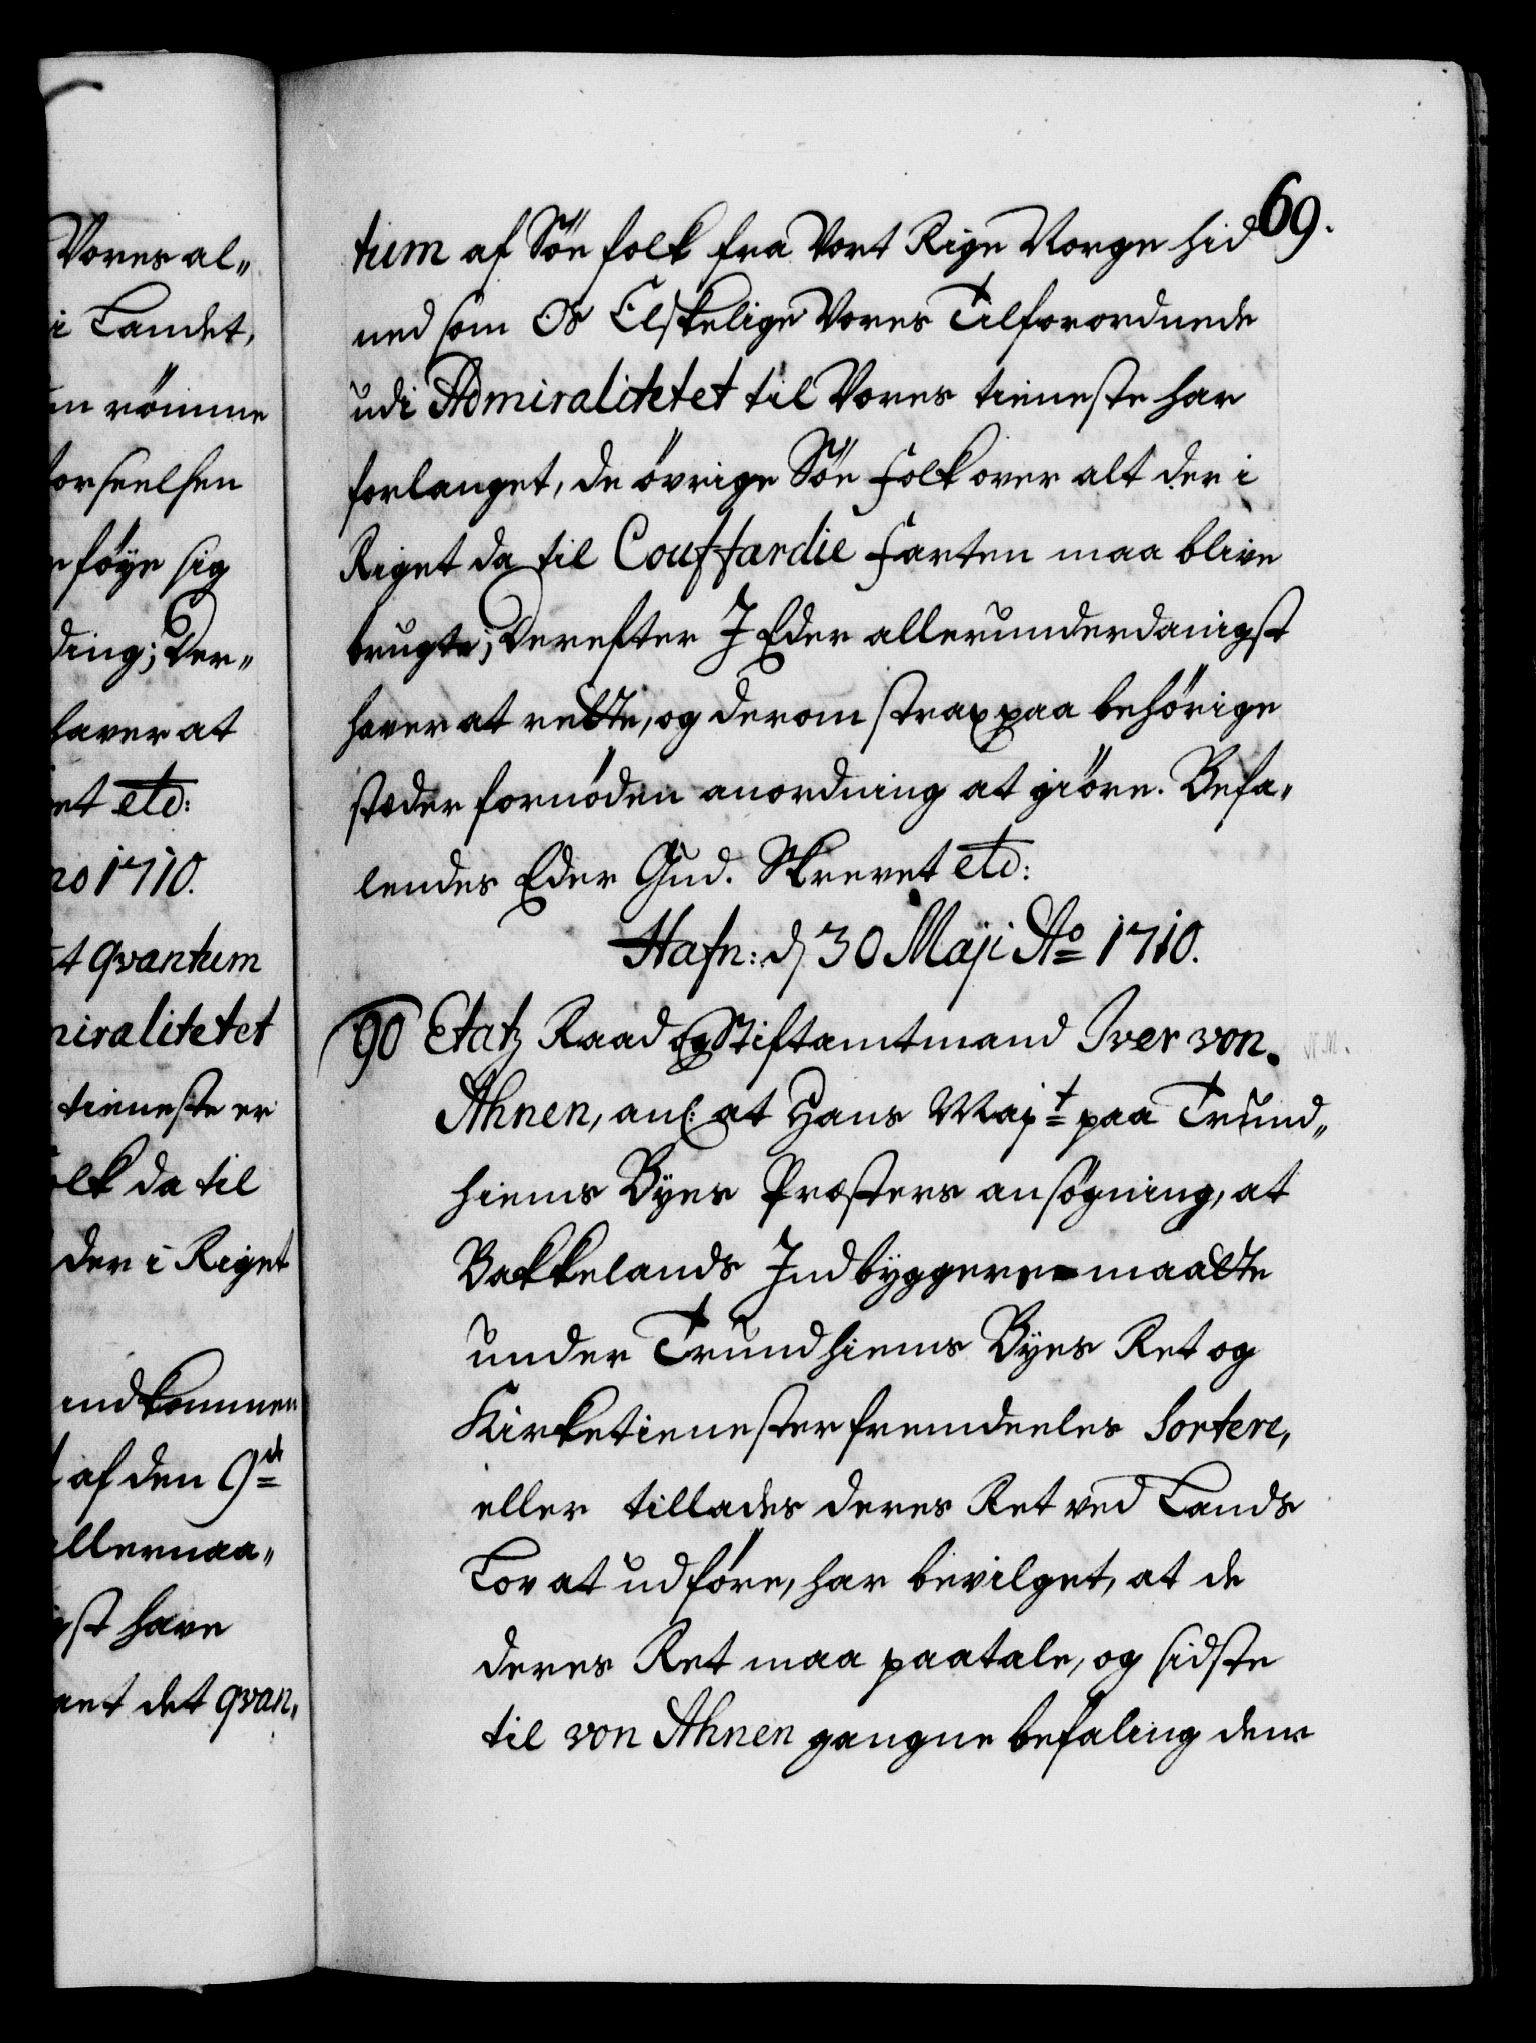 Vores al„
i Landet,
römme
forseelsen
föye sig
ding; Der„
haver at
et etc:
no 1710.
t qvantum
miralitetet
tieneste er
olk da til
der i Riget
ind kommen
af den 9de
allernaa„
gst have
det qvan„
69.
tum af Söe folk fra Vort Rige Norge hid
ned som Os Elskelige Vores Tilforordnede
udi Admiralitetet til Vores tieneste har
forlanget, de övrige Söe folk over alt der i
Riget da til Couffardie farten maa blive
brugte; Derefter I Eder allerunderdanigst
haver at rette, og derom strax paa behörige
stæder fornöden anordning at giöre. Befa„
lendes Eder Gud. Skrevet etc:
Hafn: d 30 Maji Ao 1710.
90 Etatz Raad og Stiftamtmand Iver von
Ahnen, anl: at Hans Mayt paa Trund„
hiems Byes Præsters ansögning, at
Bakkelands Indbyggere maatte
under Trundhiems Byes Ret og
Kirketienester fremdeeles sortere,
eller tillades deres Ret ved Lands
Lov at udföre, har bevilget, at de
deres Ret maa paatale, og sidste
til von Ahnen gangne befaling dem